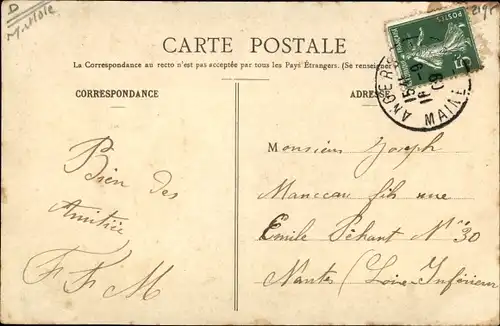 D
2195
CARTE POSTALE
La Correspondance au recto n'est pas acceptée par tous les Pays Étrangers. (Se renseigner
CORRESPONDANCE
ADRESSE
ANGERS
MAINE
15
09
Bien des
Amitiés
F F M
Monsieur Joseph
Manceau fils rue
Emile Péhant No 30
Nantes (Loire Inférieur